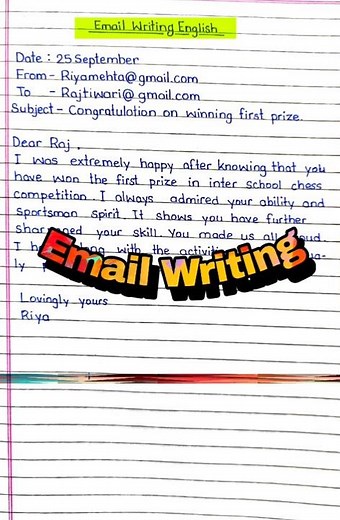 Email Writing English
Date : 25 September
From - Riyamehta@gmail.com
To - Rajtiwari@gmail.com
Subject - Congratulation on winning first prize.
Dear Raj,
I was extremely happy after knowing that you
have won the first prize in inter school chess
competition. I always admired your ability and
sportsman spirit. It shows you have further
your skill. You made us all
I with the
ly
Email Writing
Lovingly yours
Riya